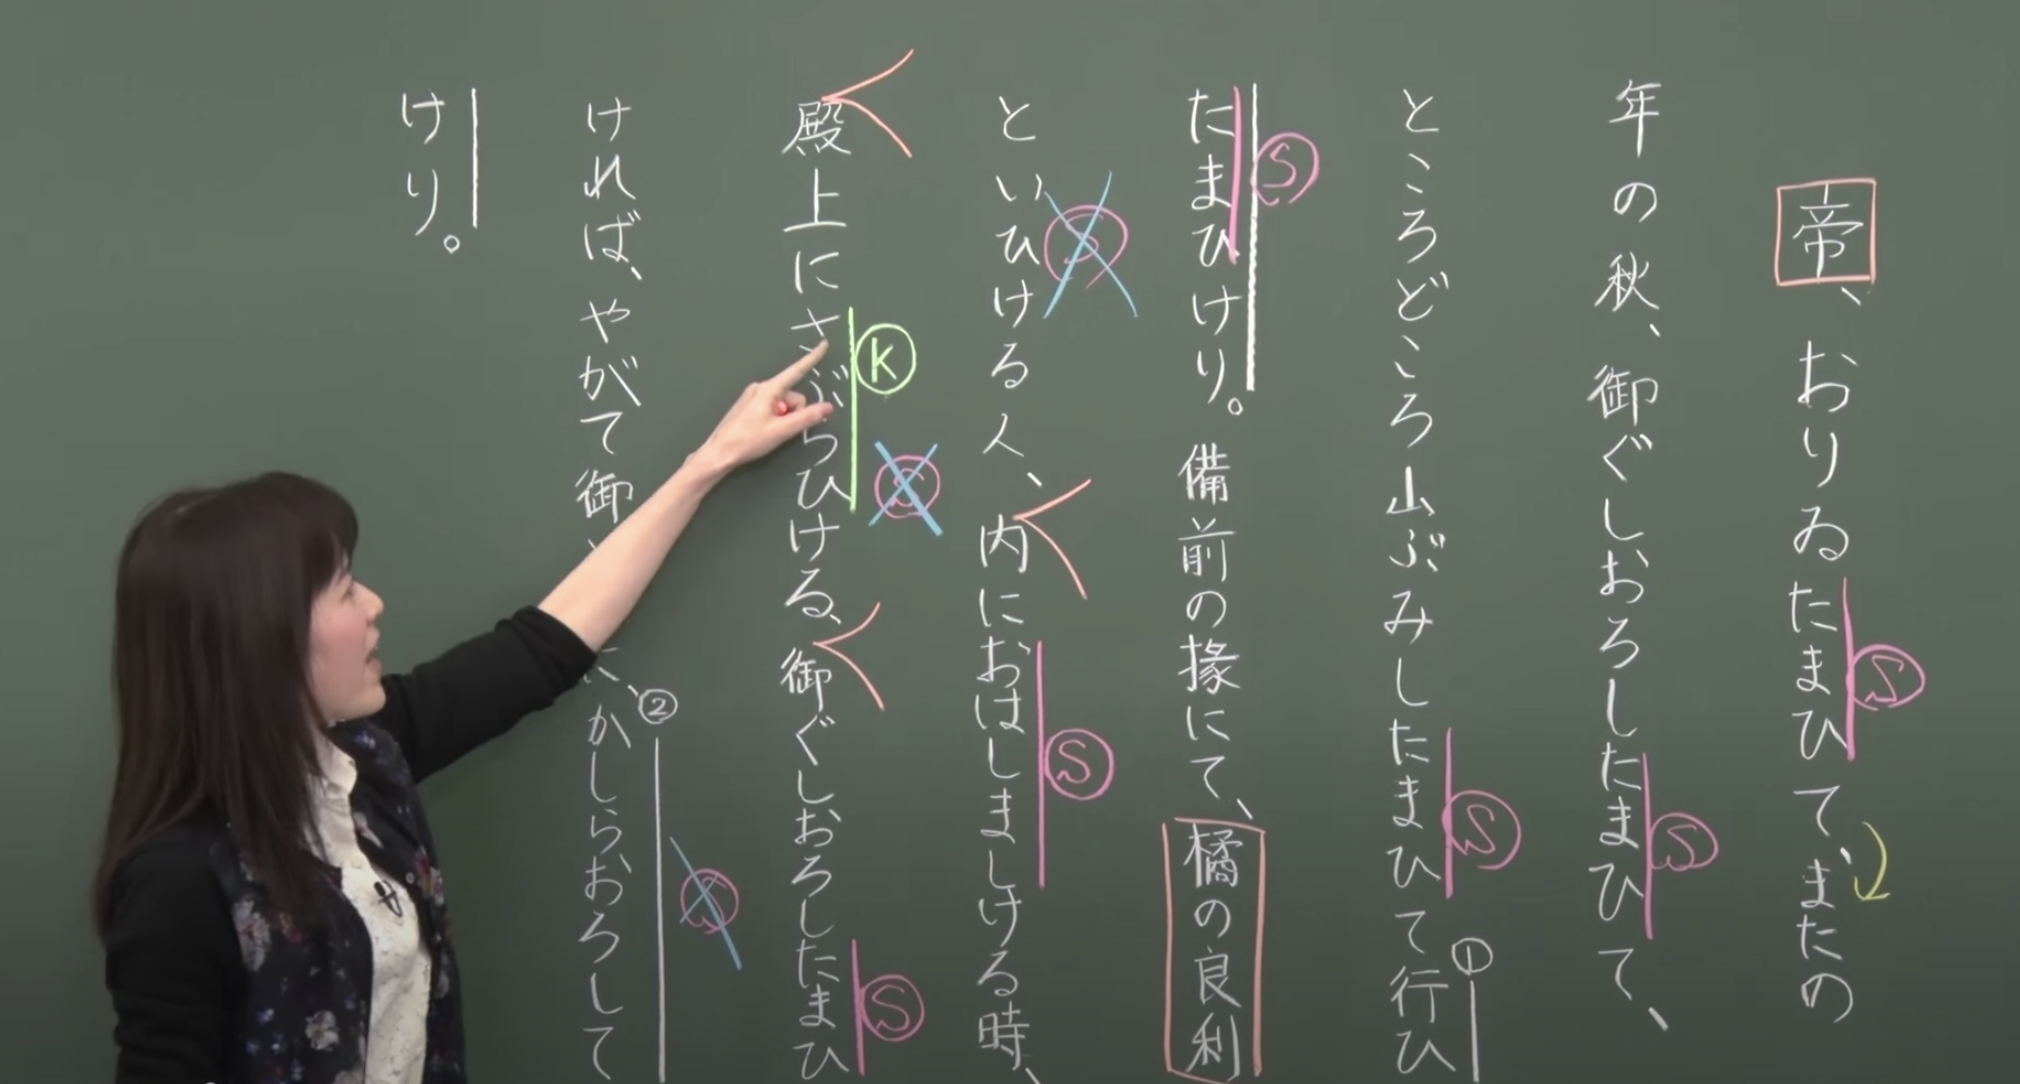 帝、おりゐたまひて、またの
年の秋、御ぐしおろしたまひて、
ところどころ山ぶみしたまひて行ひ
たまひけり。備前の掾にて、橘の良利
といひける人、内におはしましける時、
殿上にさぶらひける、御ぐしおろしたまひ
ければ、やがて御 に、かしらおろして
けり。
S
S
S
①
S
S
S
K
S
S
②
S